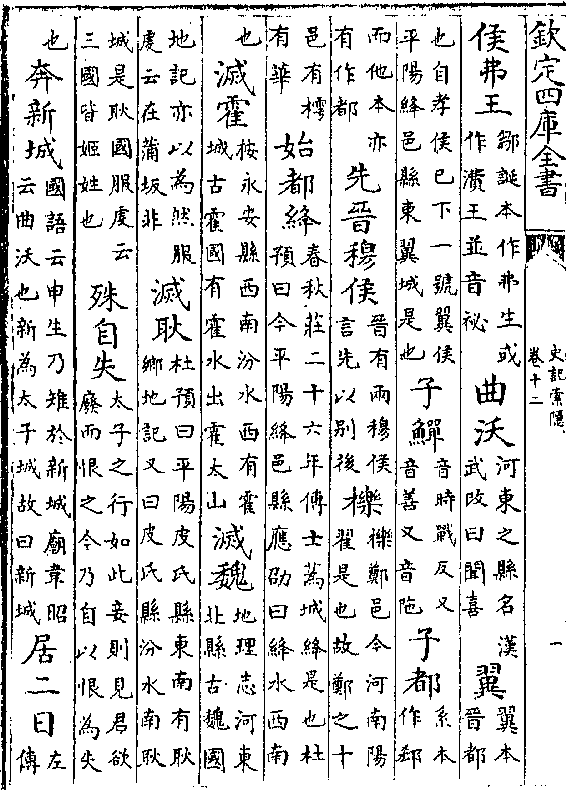 欽定四庫全書
史記索隱
卷十二
一
侯弗王鄒誕本作弗生或作瀵王並音祕曲沃河東之縣名漢武改曰聞喜翼翼本晉都
也自孝侯已下一號翼侯平陽絳邑縣東翼城是也子鱓音時戰反又音善又音陁子都系本作郄
而他本亦有作都先晉穆侯晉有兩穆侯言先以别後櫟櫟鄭邑今河南陽翟是也故鄭之十
邑有樗有華始都絳春秋莊二十六年傳士蒍城絳是也杜預曰今平陽絳邑縣應劭曰絳水西南
也滅霍按永安縣西南汾水西有霍城古霍國有霍水出霍太山滅魏地理志河東北縣古魏國
地記亦以為然服虔云在蒲坂非滅耿杜預曰平陽皮氏縣東南有耿鄉地記又曰皮氏縣汾水南耿
城是耿國服虔云三國皆姬姓也殊自失太子之行如此妾則見君欲廢而恨之今乃自以恨為失
也奔新城國語云申生乃雉於新城廟韋昭云曲沃也新為太子城故曰新城居二日左傳